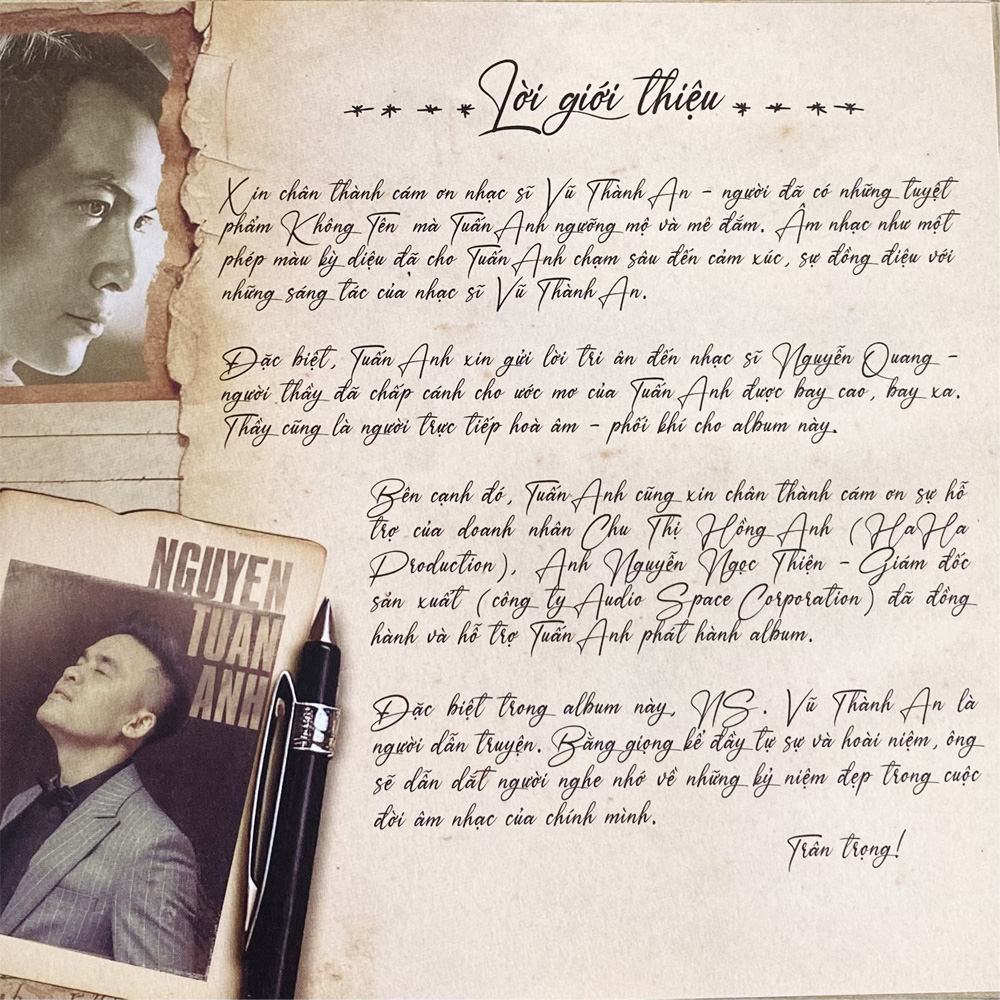 Lời giới thiệu
Xin chân thành cám ơn nhạc sĩ Vũ Thành An - người đã có những tuyệt
phẩm Không Tên mà Tuấn Anh ngưỡng mộ và mê đắm. Âm nhạc như một
phép màu kỳ diệu đã cho Tuấn Anh chạm sâu đến cảm xúc, sự đồng điệu với
những sáng tác của nhạc sĩ Vũ Thành An.
Đặc biệt, Tuấn Anh xin gửi lời tri ân đến nhạc sĩ Nguyễn Quang -
người thầy đã chấp cánh cho ước mơ của Tuấn Anh được bay cao, bay xa.
Thầy cũng là người trực tiếp hoà âm - phối khí cho album này.
Bên cạnh đó, Tuấn Anh cũng xin chân thành cám ơn sự hỗ
trợ của doanh nhân Chu Thị Hồng Anh (HaHa
Production), Anh Nguyễn Ngọc Thiện - Giám đốc
sản xuất (công ty Audio Space Corporation) đã đồng
hành và hỗ trợ Tuấn Anh phát hành album.
Đặc biệt trong album này, NS. Vũ Thành An là
người dẫn truyện. Bằng giọng kể đầy tự sự và hoài niệm, ông
sẽ dẫn dắt người nghe nhớ về những kỷ niệm đẹp trong cuộc
đời âm nhạc của chính mình.
Trân trọng!
NGUYEN
TUAN
ANH